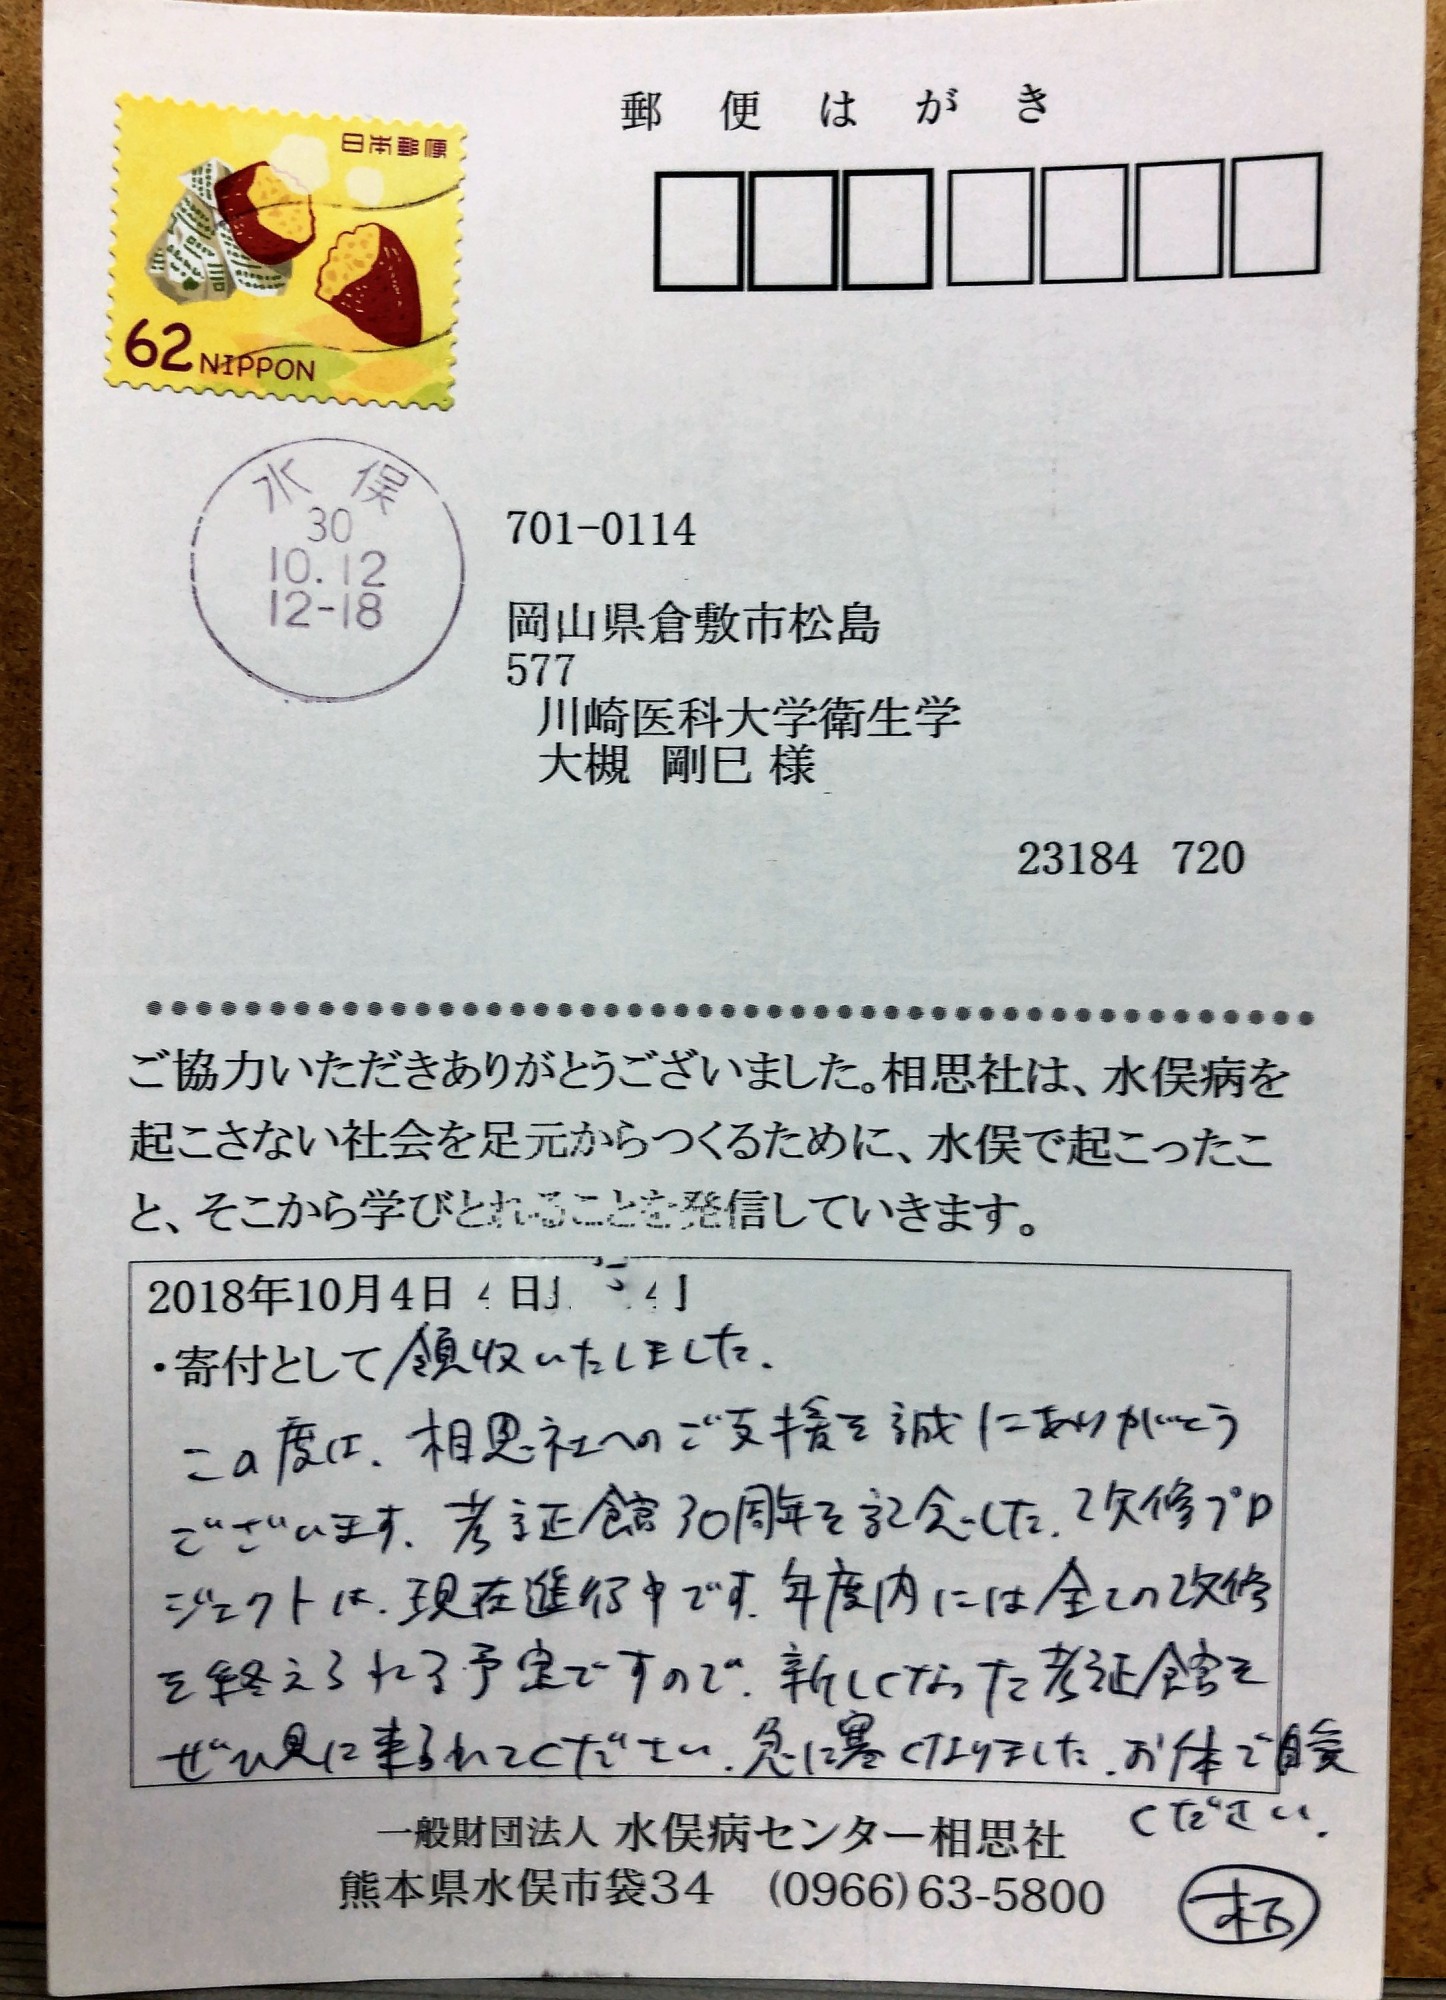 郵便はがき
日本郵便
62 NIPPON
水俣
30
10.12
12-18
701-0114
岡山県倉敷市松島
577
川崎医科大学衛生学
大槻 剛巳 様
23184 720
ご協力いただきありがとうございました。相思社は、水俣病を
起こさない社会を足元からつくるために、水俣で起こったこ
と、そこから学びとれることを発信していきます。
2018年10月4日
・寄付として領収いたしました.
この度は、相思社へのご支援を誠にありがとう
ございます. 考証館30周年を記念した、改修プロ
ジェクトは、現在進行中です. 年度内には全ての改修
を終えられる予定ですので、新しくなった考証館を
ぜひ見に来られてください. 急に寒くなりました. お体ご自愛
ください.
一般財団法人 水俣病センター相思社
熊本県水俣市袋34 (0966)63-5800